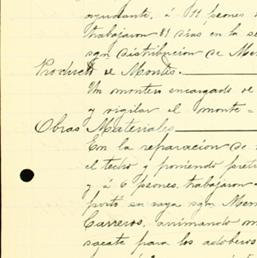 ayudante, á 11 peones
trabajaron 81 dias en la se
sgn distribucion de Me
Producto de Montes.
Un montero encargado de
y vigilar el monte
Obras Materiales
En la reparacion de
el techo y poniendo
y á 6 peones, trabajaron
portó en raya sgn Mem
Carreros, arrimando
sacate para los adoberos